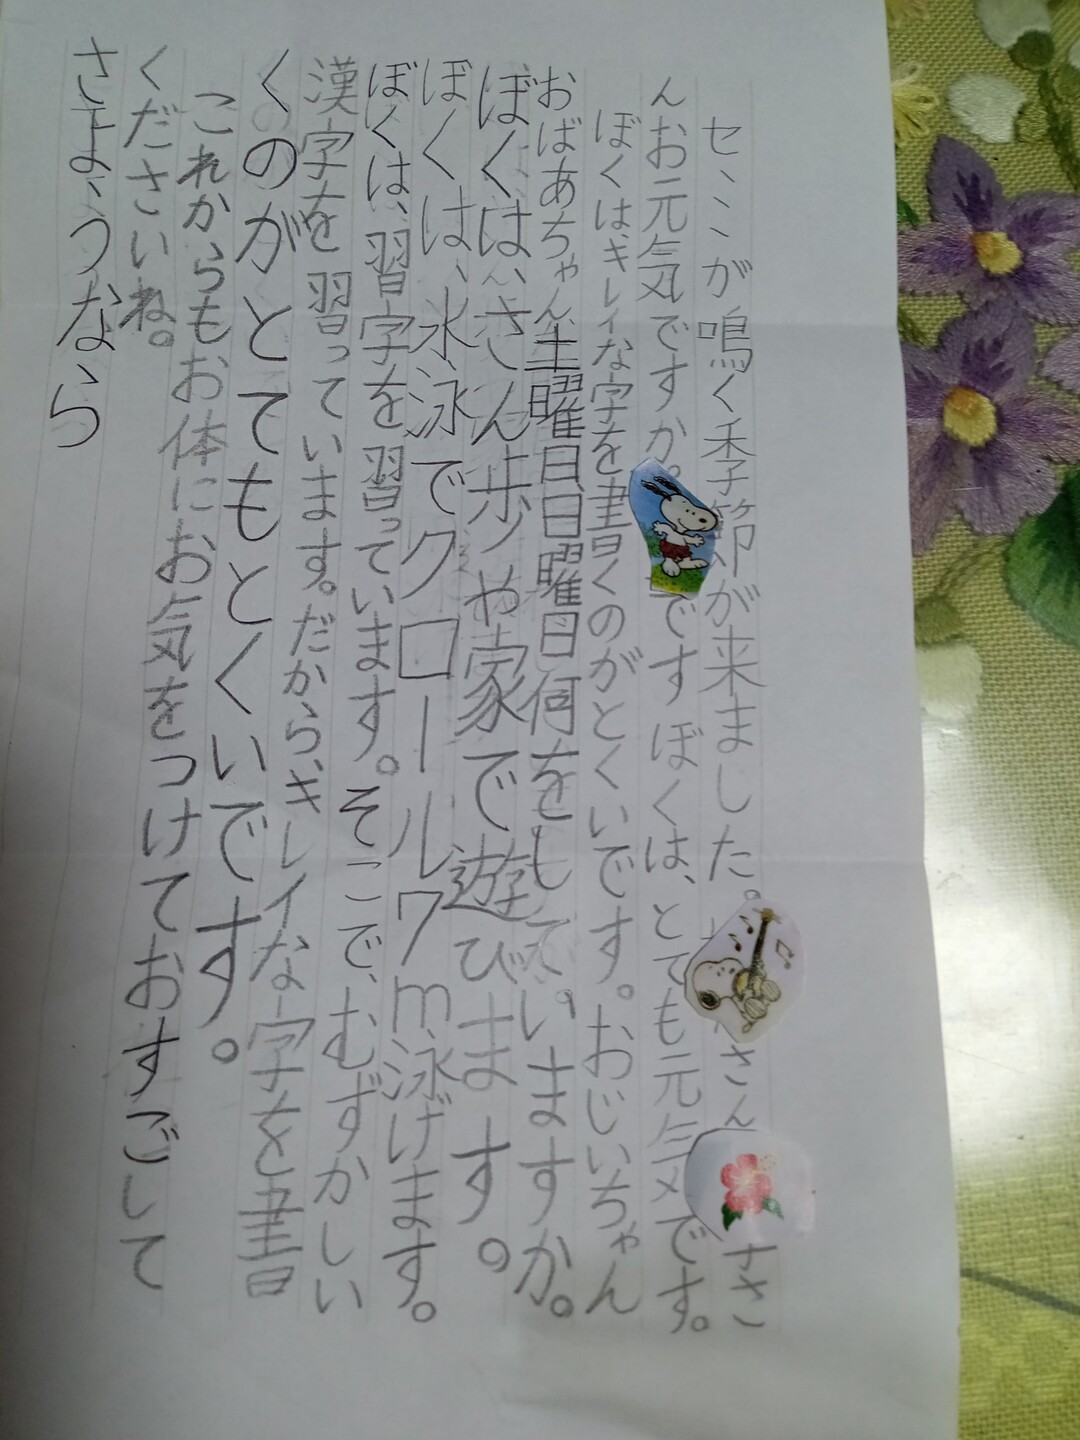 セミが鳴く季節が来ました。さんささ
んお元気ですか。ですぼくは、とても元気です。
ぼくはキレイな字を書くのがとくいです。おじいちゃん
おばあちゃん土曜日日曜日何をもしていますか。
ぼくは、さん歩や家で遊びます。
ぼくは、水泳でクロール7m泳げます。
ぼくは、習字を習っています。そこで、むずかしい
漢字を習っています。だから、キレイな字を書
くのがとてもとくいです。
これからもお体にお気をつけておすごして
くださいね。
さようなら